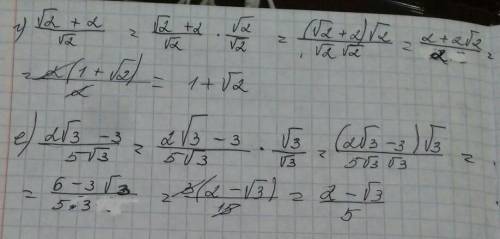 г) (√2 + 2)/√2 = (√2 + 2)/√2 · √2/√2 = ((√2 + 2)√2)/(√2 √2) = (2 + 2√2)/2 =
= 2(1 + √2)/2 = 1 + √2
е) (2√3 - 3)/(5√3) = (2√3 - 3)/(5√3) · √3/√3 = ((2√3 - 3)√3)/(5√3 √3) =
= (6 - 3√3)/(5·3) = 3(2 - √3)/15 = (2 - √3)/5